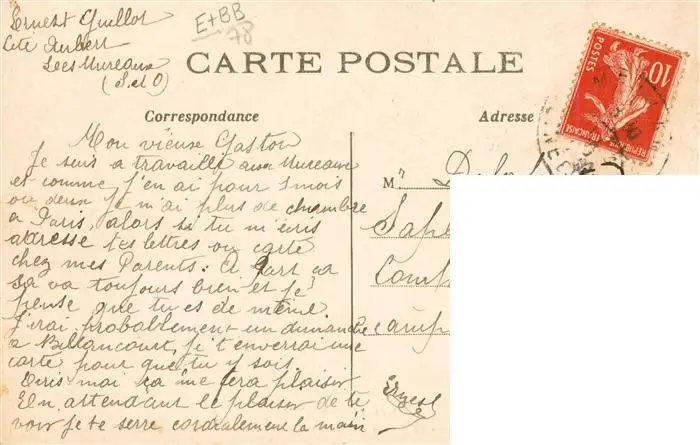 Ernest Guillot
Cité Aubert
Les Mureaux
(S. et O)
E+BB
78
CARTE POSTALE
Correspondance
Adresse
10
POSTES
REPUBLIQUE FRANÇAISE
Mon vieux Gaston
Je suis a travaille aux Mureaux
et comme j'en ai pour 1 mois
ou deux je n'ai plus de chambre
a Paris, alors si tu m'ecris
adresse tes lettres ou carte
chez mes Parents: A part ca
sa va toujours bien et je
pense que tu es de même.
J'irai probablement un dimanche
a Billancourt, je t'enverrai une
carte pour que tu y sois
Ecris moi ça me fera plaisir
En attendant le plaisir de te
voir je te serre cordialement la main
Ernest
Mr
Sape
Comp
camp